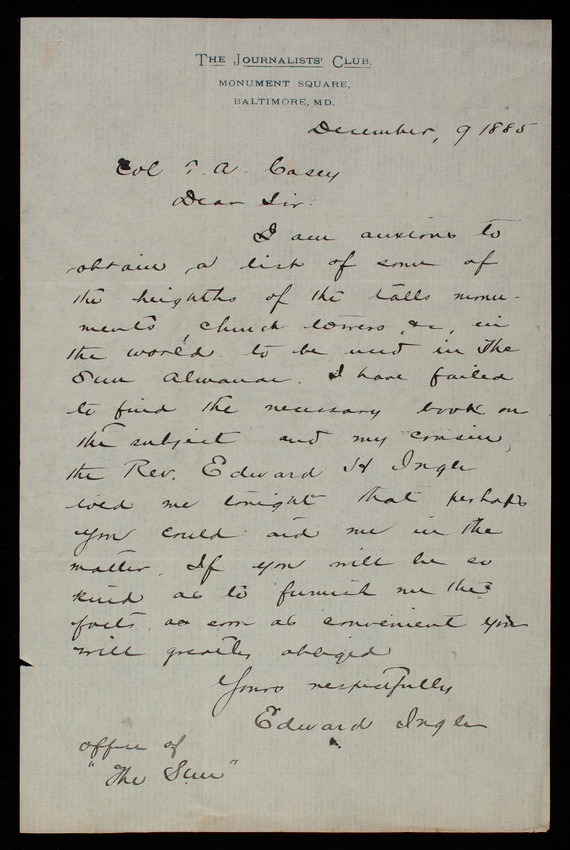 THE JOURNALISTS' CLUB,
MONUMENT SQUARE,
BALTIMORE, MD.
December, 9 1885
Col T. A. Casey
Dear Sir:
I am anxious to
obtain a list of some of
the heighths of the talls monu-
ments, church towers, &c, in
the world to be used in The
Sun Almanac. I have failed
to find the necessary book on
the subject and my cousin,
the Rev. Edward H Ingle
told me tonight that perhaps
you could aid me in the
matter. If you will be so
kind as to furnish me the
facts as soon as convenient you
will greatly obliged
Yours respectfully
Edward Ingle
Office of
"The Sun"